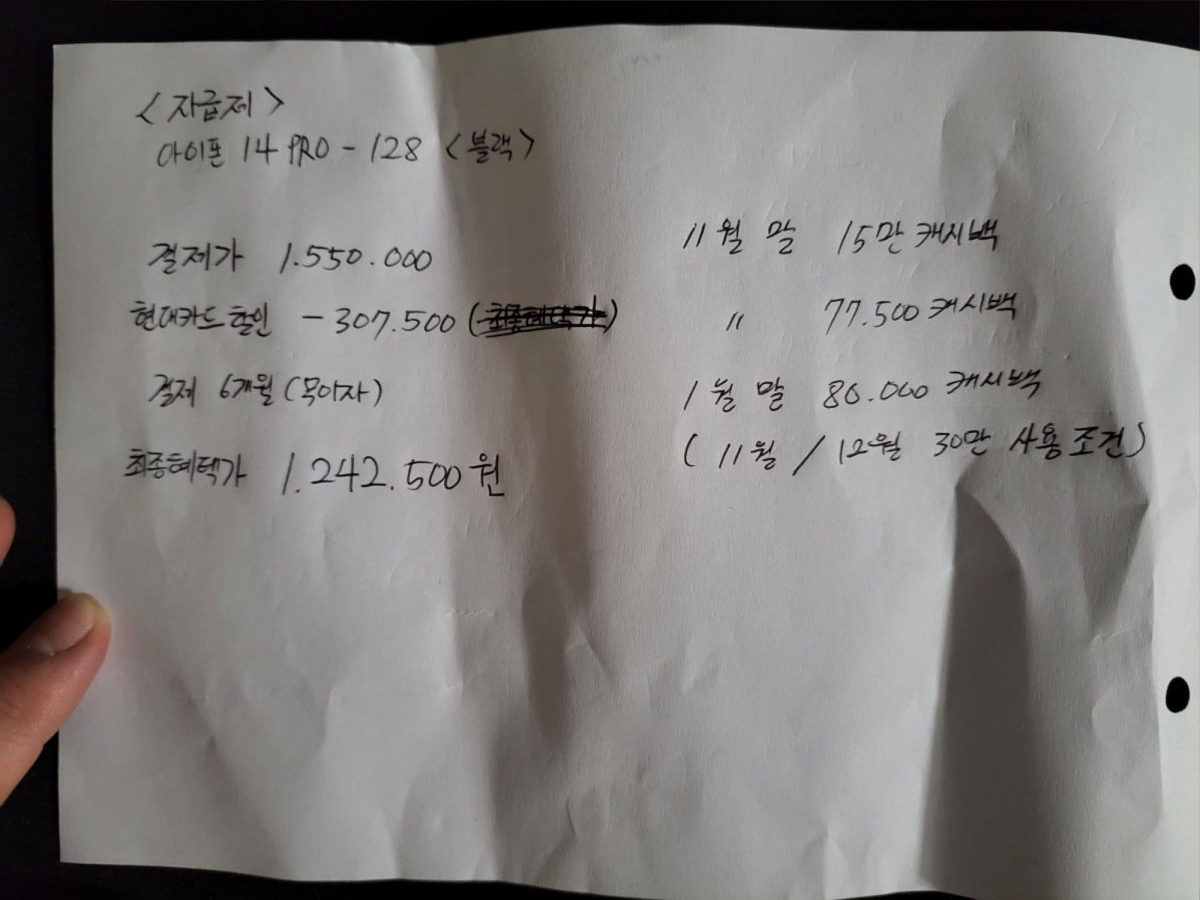 <자급제>
아이폰 14 PRO - 128 <블랙>
결제가 1.550.000
현대카드 할인 - 307.500 (최종혜택가)
결제 6개월 (무이자)
최종혜택가 1.242.500원
11월 말 15만 캐시백
〃 77.500 캐시백
1월 말 80.000 캐시백
( 11월 / 12월 30만 사용조건)